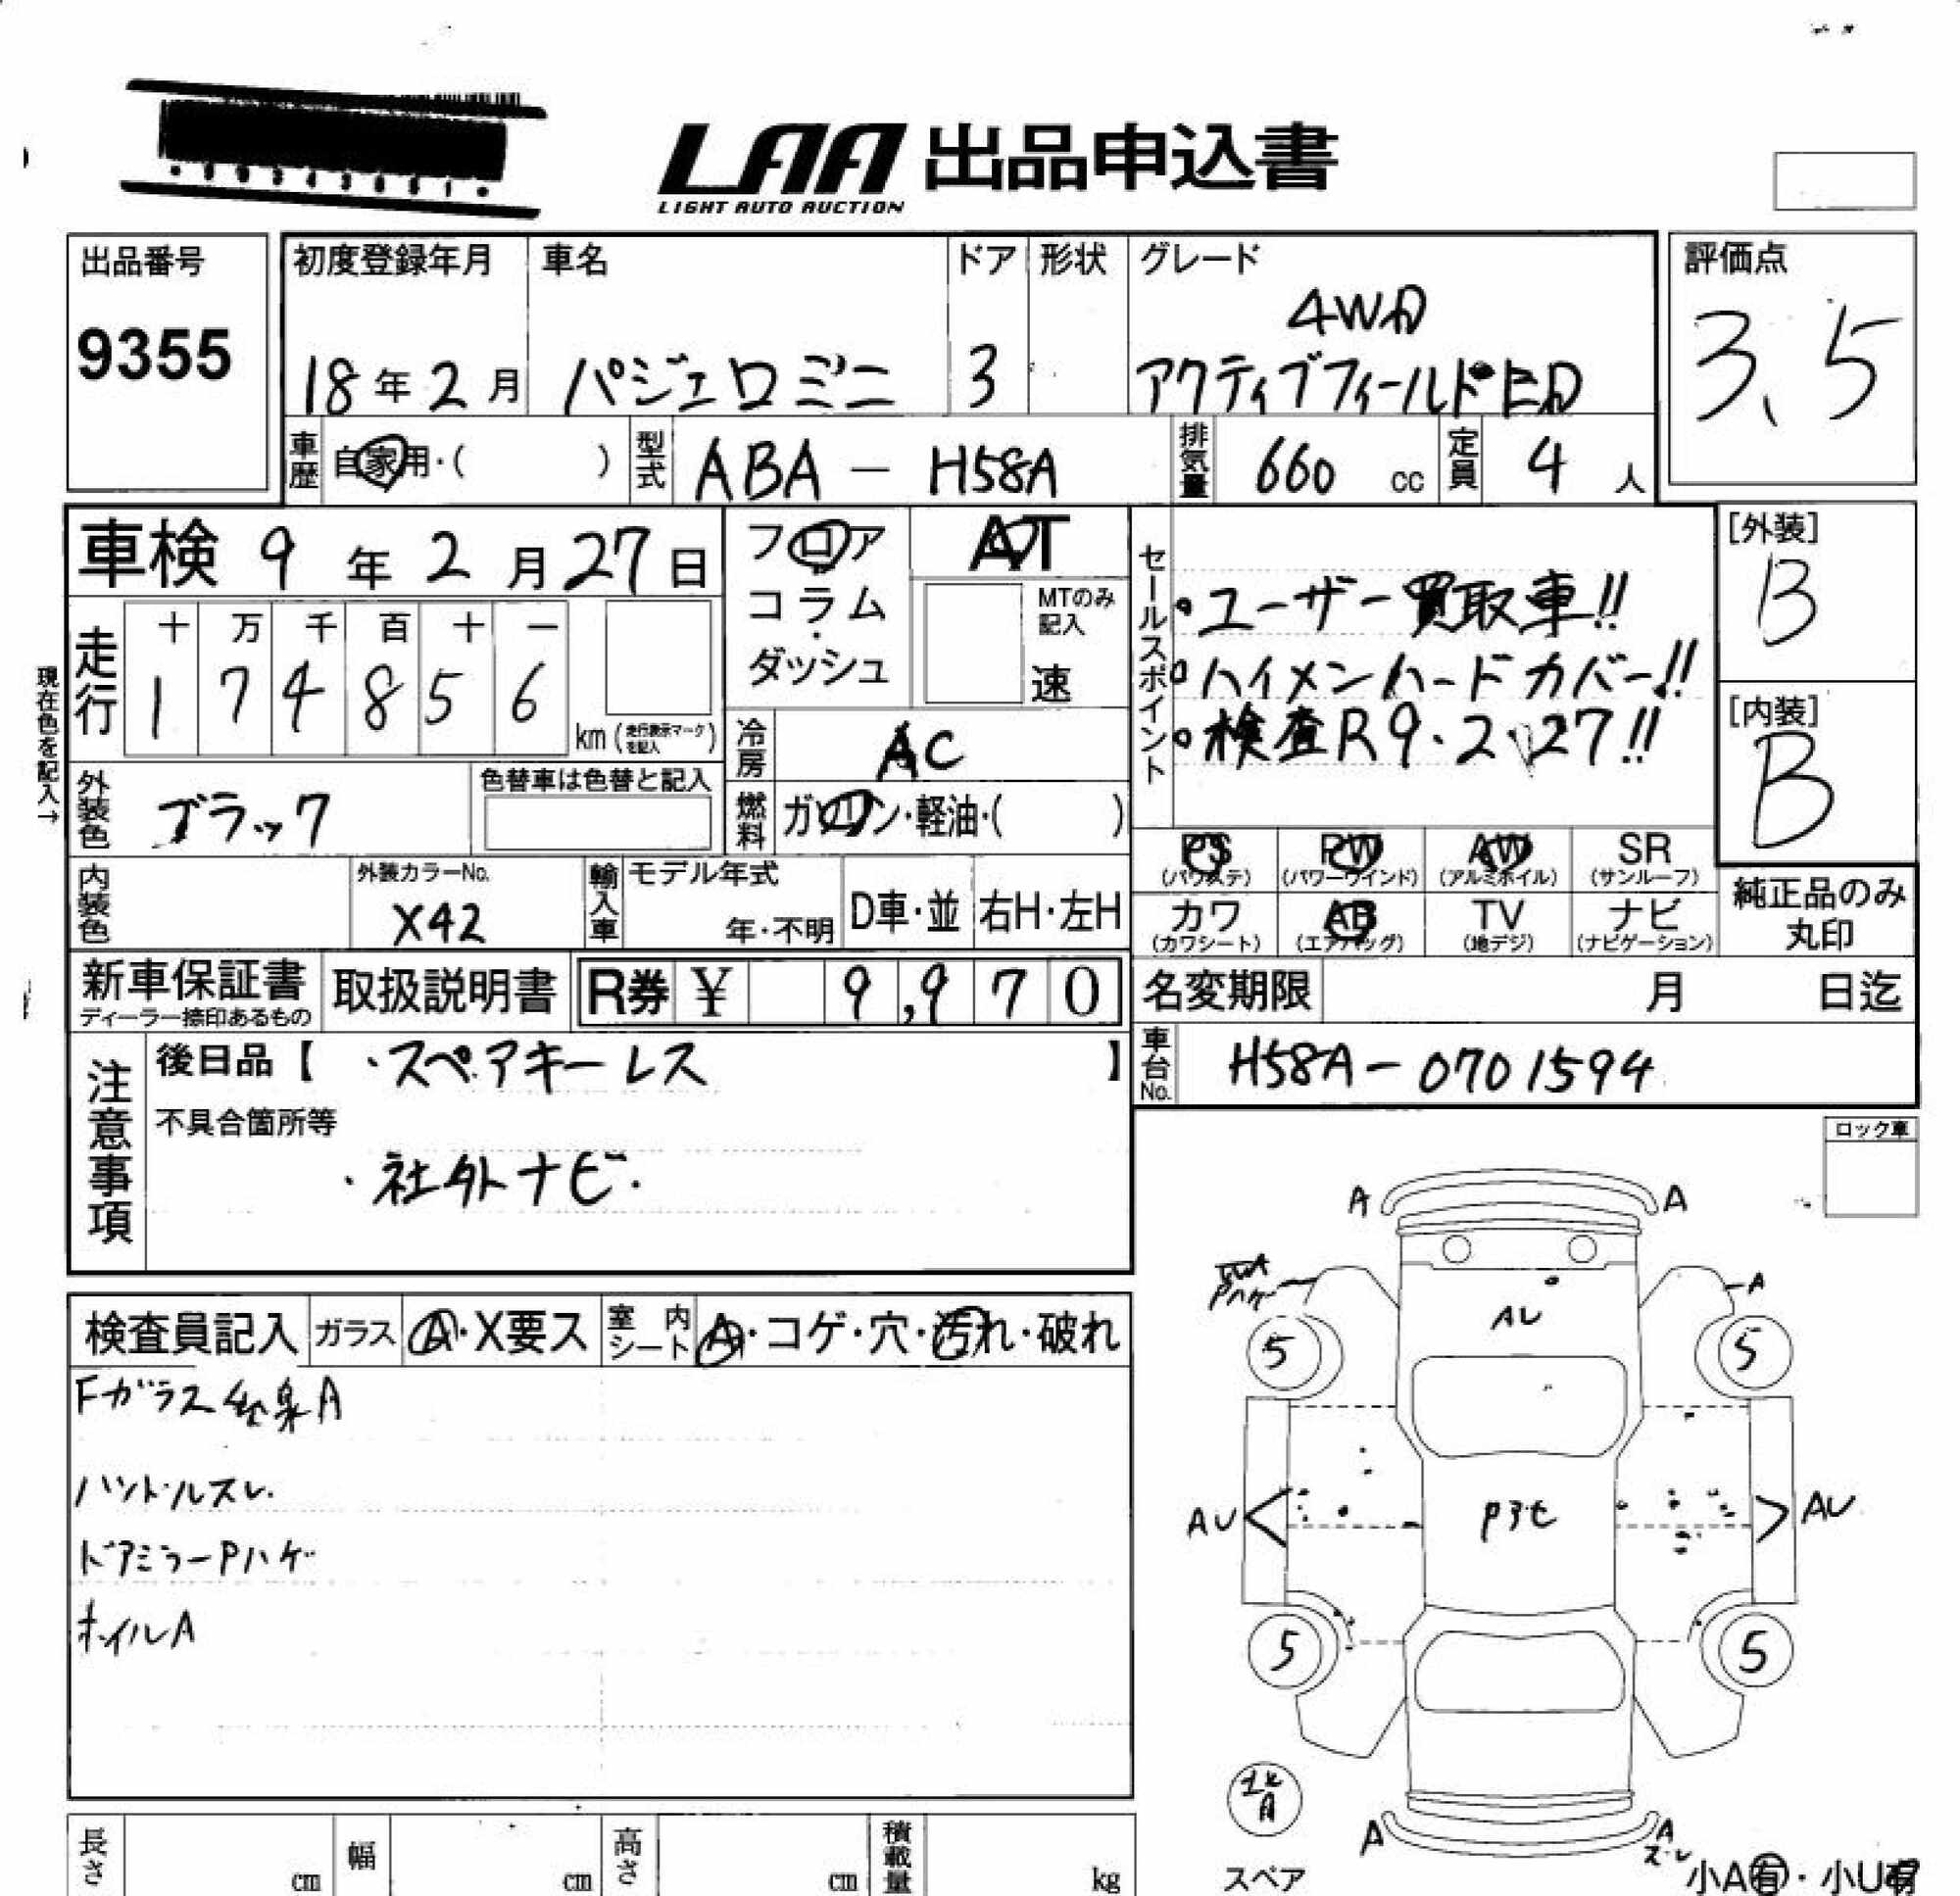 LAA 出品申込書
LIGHT AUTO AUCTION
出品番号
9355
初度登録年月
18年2月
車名
パジェロミニ
ドア
3
形状
グレード
4WD
アクティブフィールドED
評価点
3.5
車歴
自家用・( )
型式
ABA - H58A
排気量
660 cc
定員
4 人
車検 9年2月27日
フロア
コラム
・
ダッシュ
AT
MTのみ
記入
速
セールスポイント
・ユーザー買取車!!
・ハイメンハードカバー!!
・検査R9.2.27!!
[外装]
B
[内装]
B
現在色を記入→
走行
十 万 千 百 十 一
1 7 4 8 5 6
km(走行表示マークを記入)
冷房
AC
外装色
ブラック
色替車は色替と記入
燃料
ガソリン・軽油・( )
PS
(パワステ)
PW
(パワーウインド)
AW
(アルミホイル)
SR
(サンルーフ)
カワ
(カワシート)
AB
(エアバッグ)
TV
(地デジ)
ナビ
(ナビゲーション)
純正品のみ
丸印
内装色
外装カラーNo.
X42
輸入車
モデル年式
年・不明
D車・並
右H・左H
新車保証書
ディーラー捺印あるもの
取扱説明書
R券 ¥ 9,970
名変期限 月 日迄
車台No.
H58A-0701594
注意事項
後日品【 ・スペアキーレス 】
不具合箇所等
・社外ナビ.
ロック車
検査員記入
ガラス
A・X要ス
室内
シート
A・コゲ・穴・汚れ・破れ
Fガラス線A
ハンドルスレ.
ドアミラーPハゲ
ホイルA
A A
Pハゲ
A
AU
5 5
AU
AU
5 5
A
A
スレ
スペア
小A有・小U有
長さ cm
幅 cm
高さ cm
積載量 kg